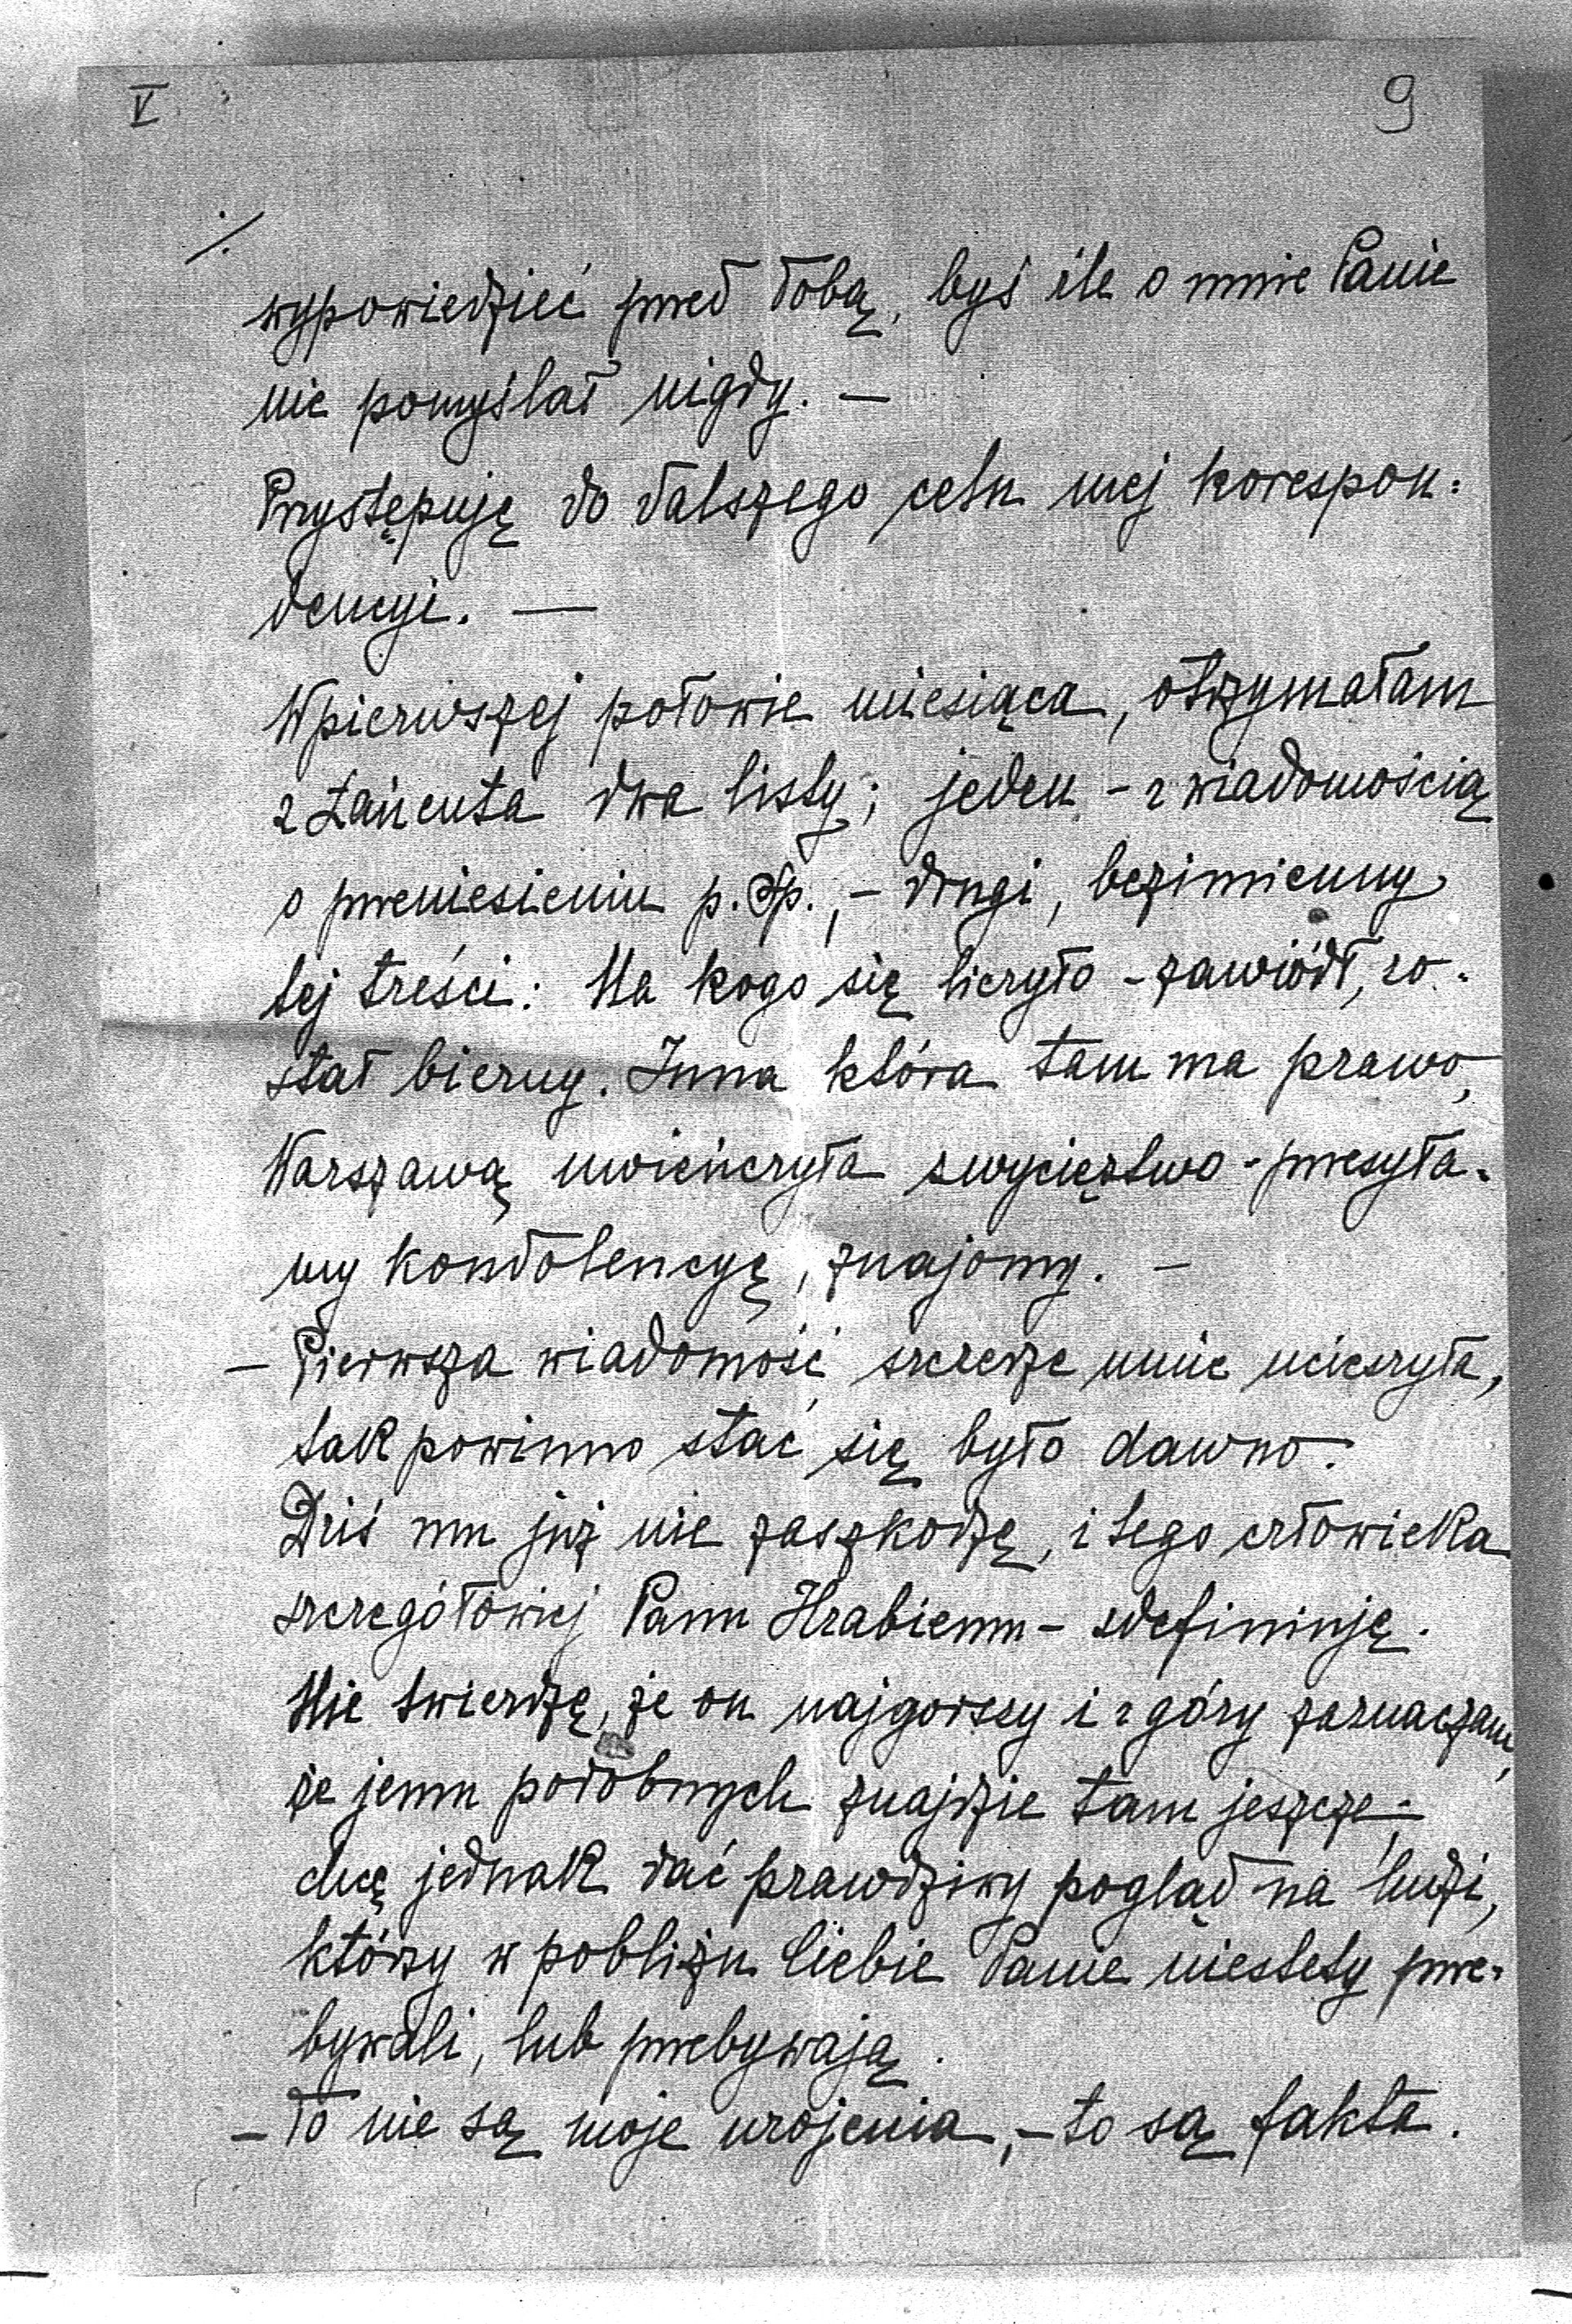 V
9
./.
wypowiedzieć przed Tobą, byś źle o mnie Panie
nie pomyślał nigdy. —
Przystępuję do dalszego celu mej korespon:
dencyi. —
W pierwszej połowie miesiąca, otrzymałam
z Łańcuta dwa listy; jeden - z wiadomością
o przeniesieniu p. Sp., - drugi, bezimienny
tej treści: Na kogo się liczyło - zawiódł, zo-
stał bierny. Inna która tam ma prawo,
Warszawą uwieńczyła zwycięztwo - przesyła-
my kondolencyę, znajomy. —
— Pierwsza wiadomość szczerze mnie ucieszyła,
tak powinno stać się było dawno.
Dziś mu już nie zaszkodzę, i tego człowieka
szczegółowiej Panu Hrabiemu - zdefiniuję.
Nie twierdzę, że on najgorszy i z góry zaznaczam,
że jemu podobnych znajdzie tam jeszcze;
chcę jednak dać prawdziwy pogląd na ludzi,
którzy w pobliżu Ciebie Panie niestety prze-
bywali, lub przebywają.
— To nie są moje urojenia, - to są fakta.